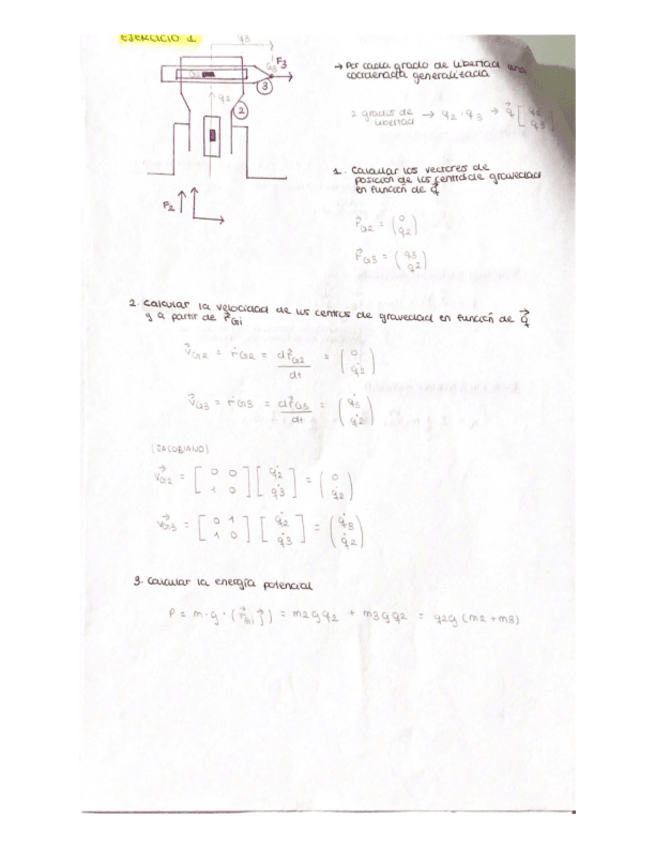 EJERCICIO 1
q3
F3
G3
3
q2
2
F2
→ Por cada grado de libertad una
coordenada generalizada
2 grados de libertad → q2, q3 → q⃗ [q2 q3]
1. Calcular los vectores de
posición de los centro de gravedad
en función de q⃗
r⃗G2 = (0 q2)
r⃗G3 = (q3 q2)
2. Calcular la velocidad de los centros de gravedad en función de q⃗
y a partir de r⃗Gi
v⃗G2 = ṙG2 = dr⃗G2/dt = (0 q̇2)
v⃗G3 = ṙG3 = dr⃗G3/dt = (q̇3 q̇2)
(JACOBIANO)
v⃗G2 = [0 0 1 0] [q̇2 q̇3] = (0 q̇2)
v⃗G3 = [0 1 1 0] [q̇2 q̇3] = (q̇3 q̇2)
3. Calcular la energía potencial
P = m·g·(r⃗Gi j⃗) = m2gq2 + m3gq2 = q2g(m2+m3)